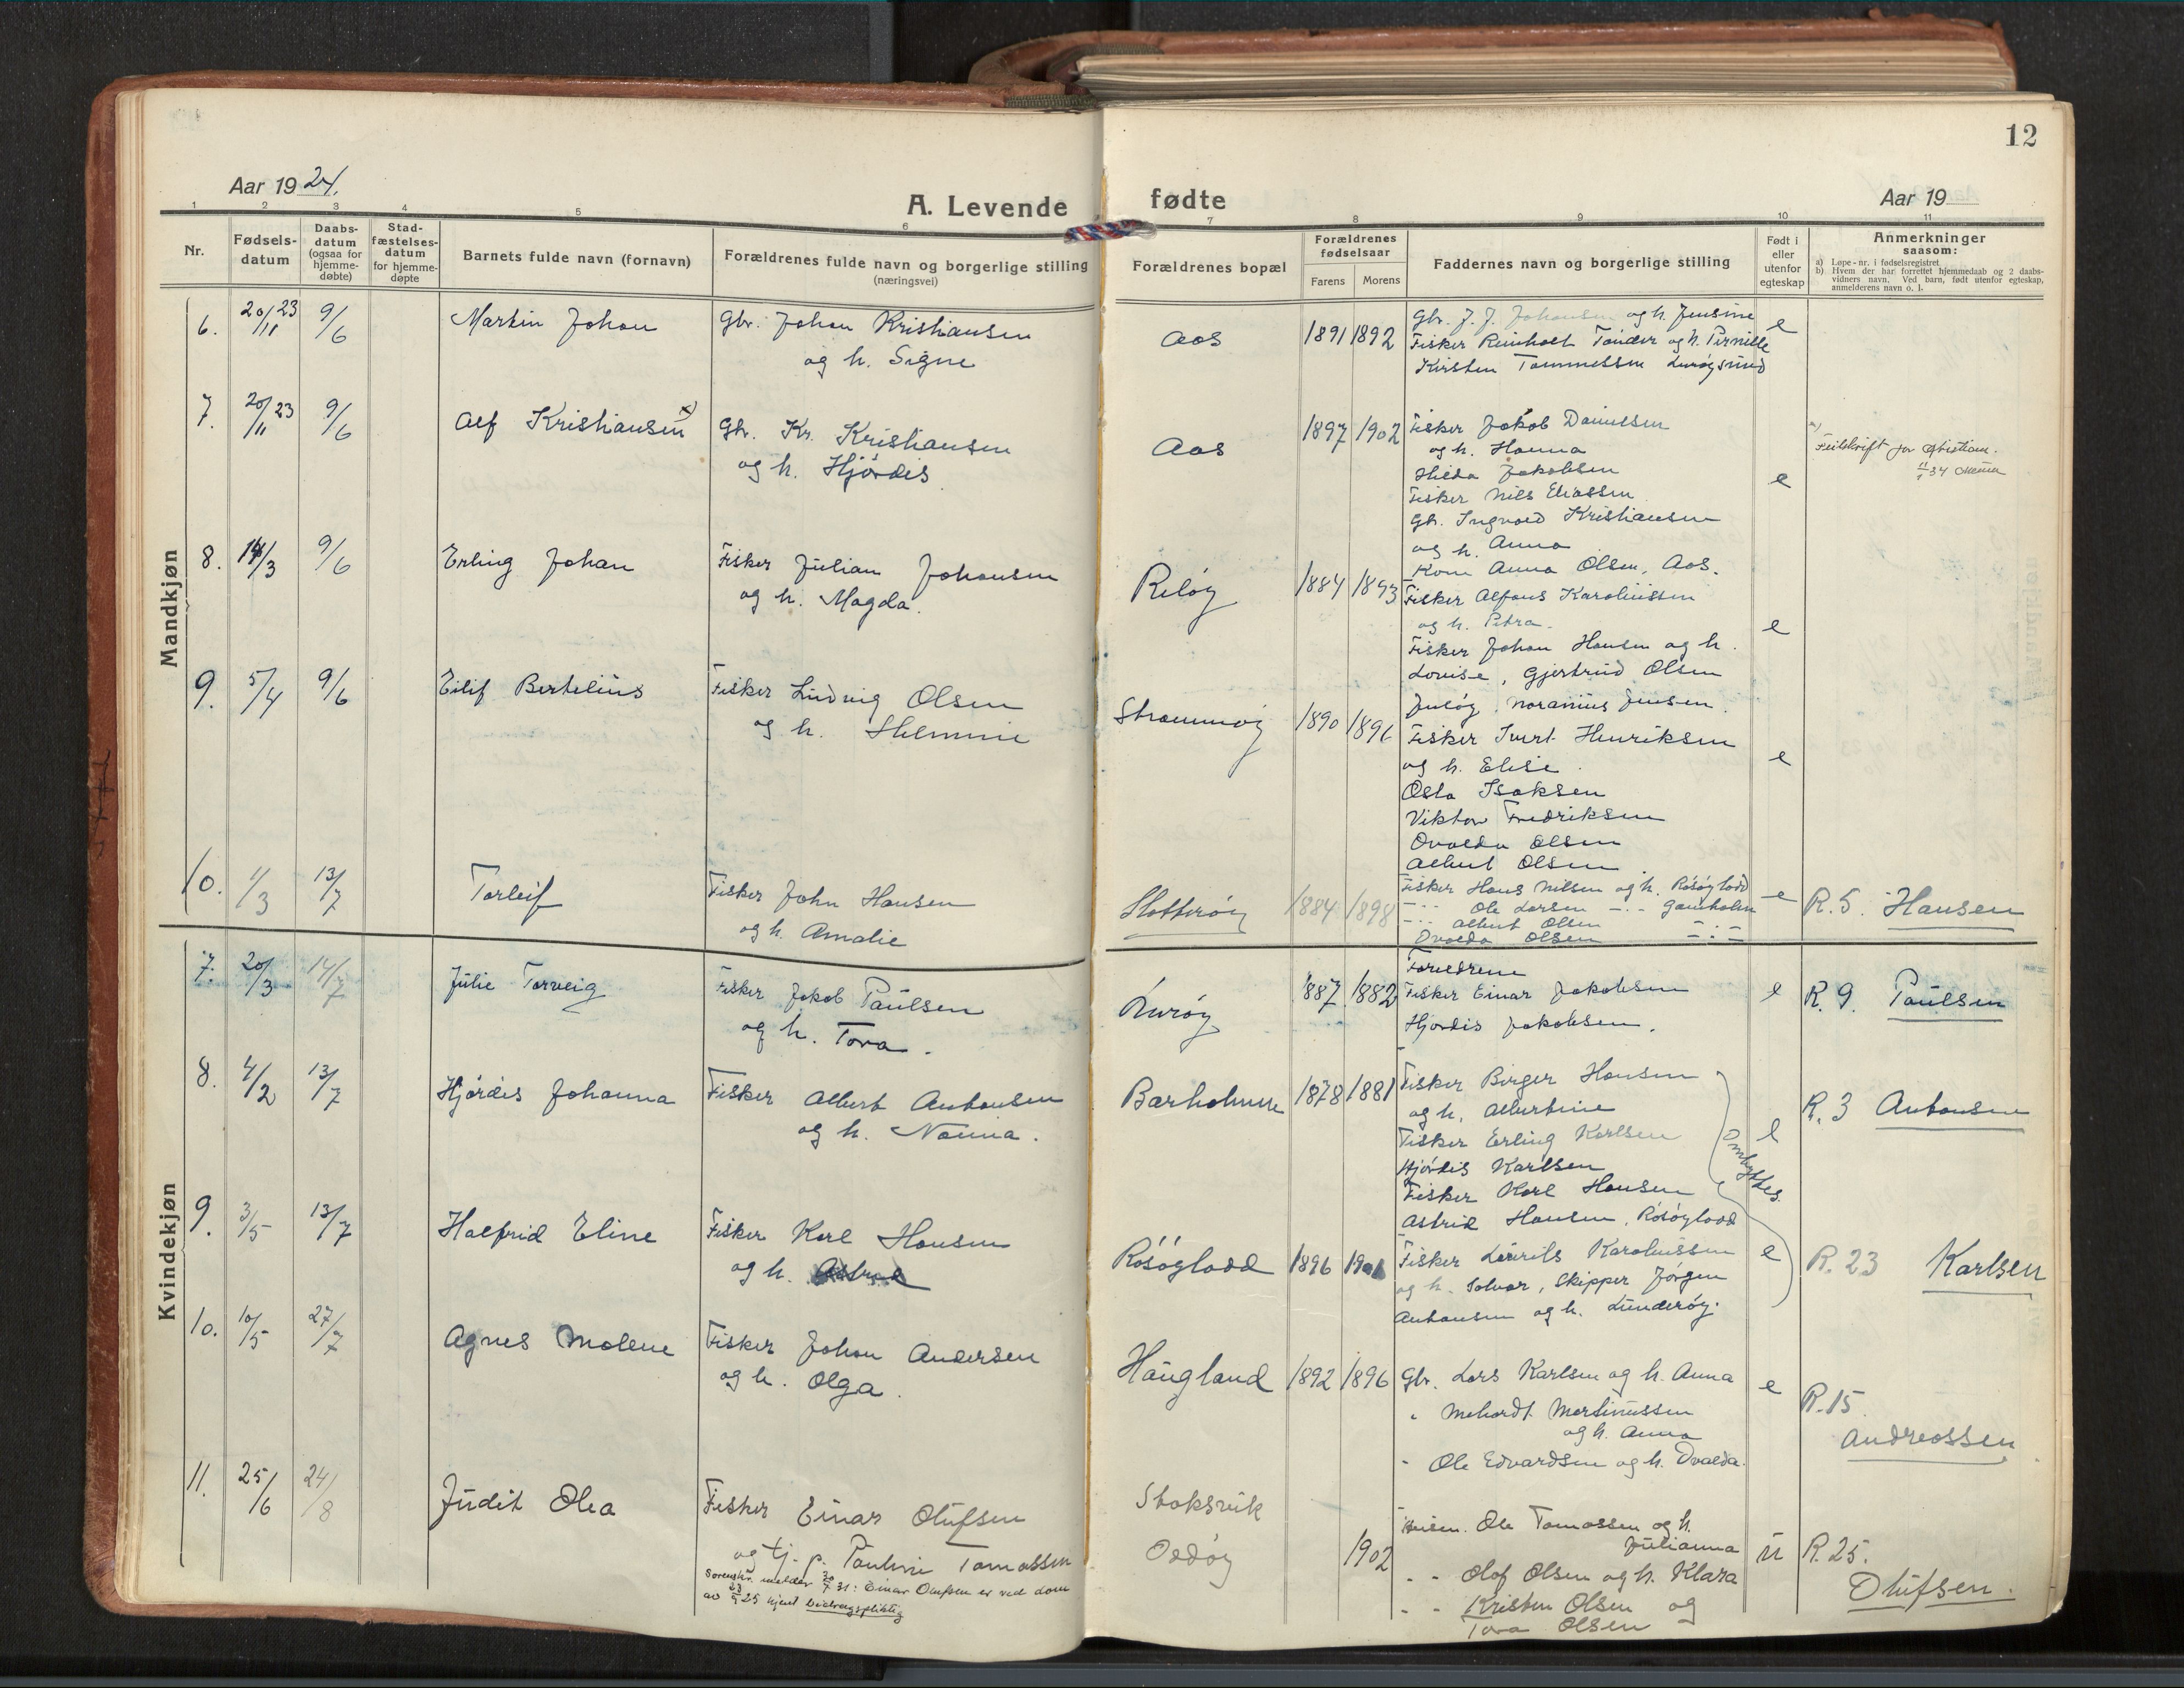 12
Aar 1924.
A. Levende fødte
Aar 19
1 2 3 4 5 6 7 8 9 10 11
Nr.
Fødsels-
datum
Daabs-
datum
(ogsaa for
hjemme-
døbte)
Stad-
fæstelses-
datum
for hjemme-
døpte
Barnets fulde navn (fornavn)
Forældrenes fulde navn og borgerlige stilling
(næringsvei)
Forældrenes bopæl
Forældrenes
fødselsaar
Farens Morens
Faddernes navn og borgerlige stilling
Født i
eller
utenfor
egteskap
Anmerkninger
saasom:
a) Løpe-nr. i fødselsregistret
b) Hvem der har forrettet hjemmedaab og 2 daabs-
vidners navn. Ved barn, født utenfor egteskap,
anmelderens navn o. l.
Mandkjøn
6. 20/11 23 9/6 Martin Johan
Gbr. Johan Kristiansen
og h. Signe
Aos 1891 1892
Gbr. J. J. Johansen og h. Jensine
Fisker Reinholt Tønder og h. Pernille
Kirsten Tommelsen Lurøysund
e
7. 20/11 23 9/6 Alf Kristiansen x)
Gbr. Kr. Kristiansen
og h. Hjørdis
Aos 1897 1902
Fisker Jakob Danielsen
og h. Hanna
Hilda Jakobsen
Fisker Nils Eliassen
Gbr. Ingvald Kristiansen
og h. Anna
Kone Anna Olsen, Aos.
e
x)
Feilskrift for Kristian.
8. 14/3 9/6 Erling Johan
Fisker Julian Johansen
og h. Magda.
Reløy 1884 1893
Fisker Alfons Karoliussen
og h. Petra.
Fisker Johan Hansen og h.
Lovise, Gjertrud Olsen
e
9. 5/4 9/6 Eilif Bertelius
Fisker Ludvig Olsen
og h. Helmine
Straumøy 1890 1896
Fisker Ivert Henriksen
og h. Elise.
Osla Isaksen
Viktor Fredriksen
Ovalda Olsen
Albert Olsen
e
10. 1/3 13/7 Torleif
Fisker John Hansen
og h. Amalie
Slotterøy 1884 1898
Fisker Hans Nilsen og h. Rösöylodd
Ole Larsen
Albert Olsen
Ovalda Olsen
e
R. 5. Hansen
Kvindekjøn
7. 20/3 14/7 Julie Torveig
Fisker Jakob Paulsen
og h. Tora.
Lurøy 1887 1882
Foreldrene
Fisker Einar Jakobsen
Hjørdis Jakobsen.
e
R. 9. Paulsen
8. 4/2 13/7 Hjørdis Johanna
Fisker Albert Antonsen
og h. Nanna.
Barholmen 1878 1881
Fisker Birger Hansen
og h. Albertine
Fisker Erling Karlsen
Hjørdis Karlsen
Fisker Karl Hansen
Astrid Hansen, Rösöylodd
e
ombyttes.
R. 3 Antonsen
9. 3/5 13/7 Halfrid Eline
Fisker Karl Hansen
og h. Astrid
Rösöylodd 1896 1901
Fisker Laurits Karoliussen
og h. Solvor, Skipper Jørgen
Antonsen og h. Lunderøy.
e
R. 23 Karlsen
10. 10/5 27/7 Agnes Molene
Fisker Johan Andersen
og h. Olga.
Haugland 1892 1896
Gbr. Lars Karlsen og h. Anna
" Mehardt Martinussen
og h. Anna
" Ole Edvardsen og h. Ovalda.
e
R. 15.
Andreassen
11. 25/6 24/8 Judit Olea
Fisker Einar Olufsen
og tj. p. Pauline Tomassen
Sorenskr. melder 30/7 31: Einar Olufsen er ved dom
av 23/9 25 kjent bidragspliktig
Stoksvik
Oddøy 1902
Ole Tomassen og h.
Julianna
" " Olof Olsen og h. Klara
" " Kristen Olsen og
Tora Olsen
u
R. 25.
Olufsen.